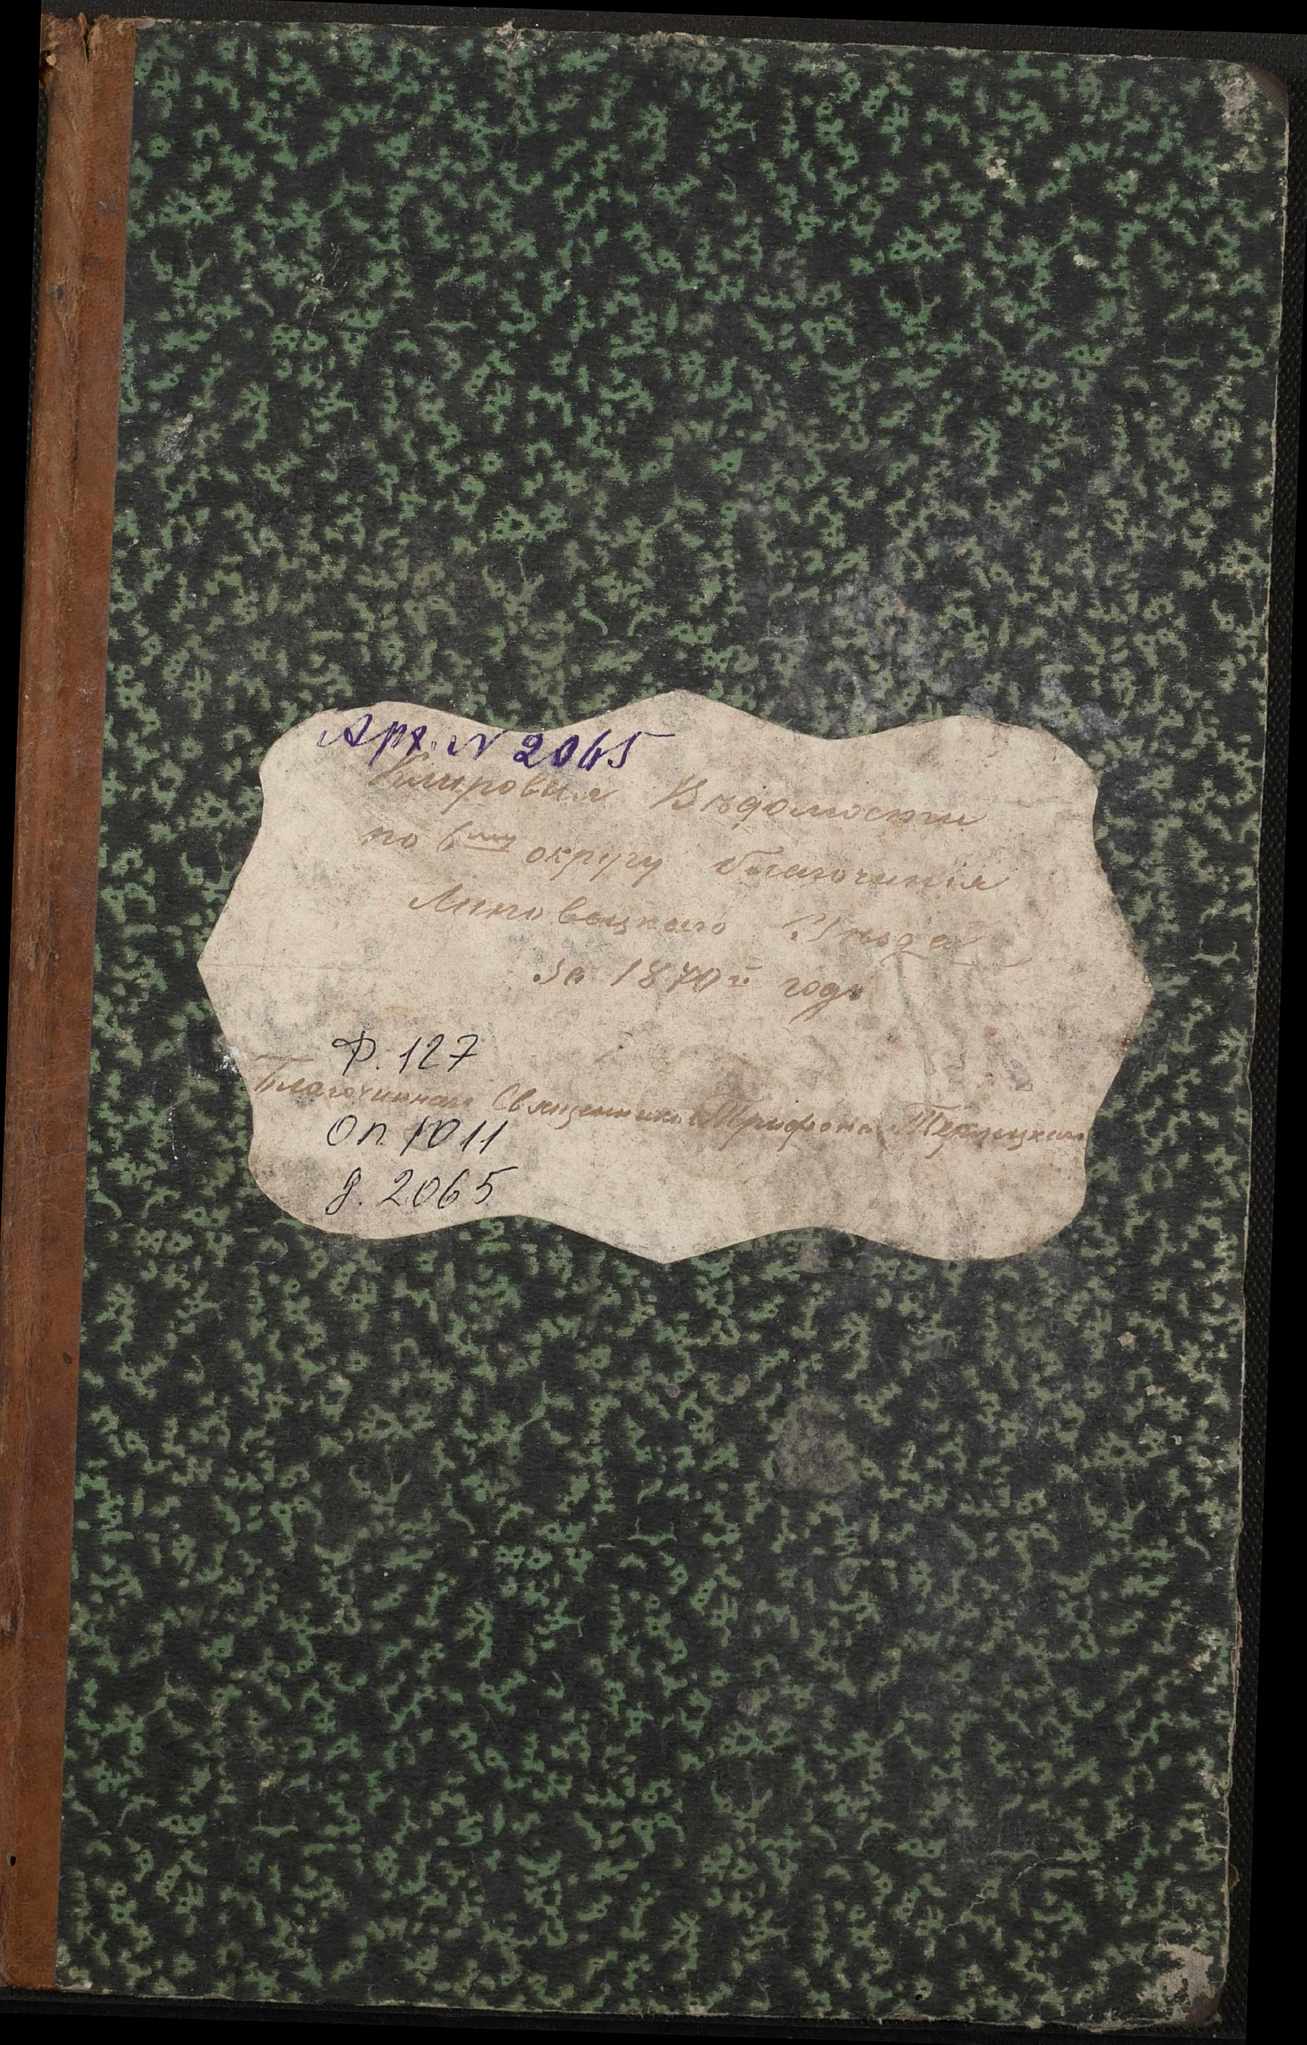 Арх. N 2065
Клировыя Вѣдомости
по 6му округу благочинія
Липовецкаго Уѣзда
За 1870й годъ
Ф. 127
Благочиннаго Священника Трифона Терлецкаго
Оп 1011
д. 2065